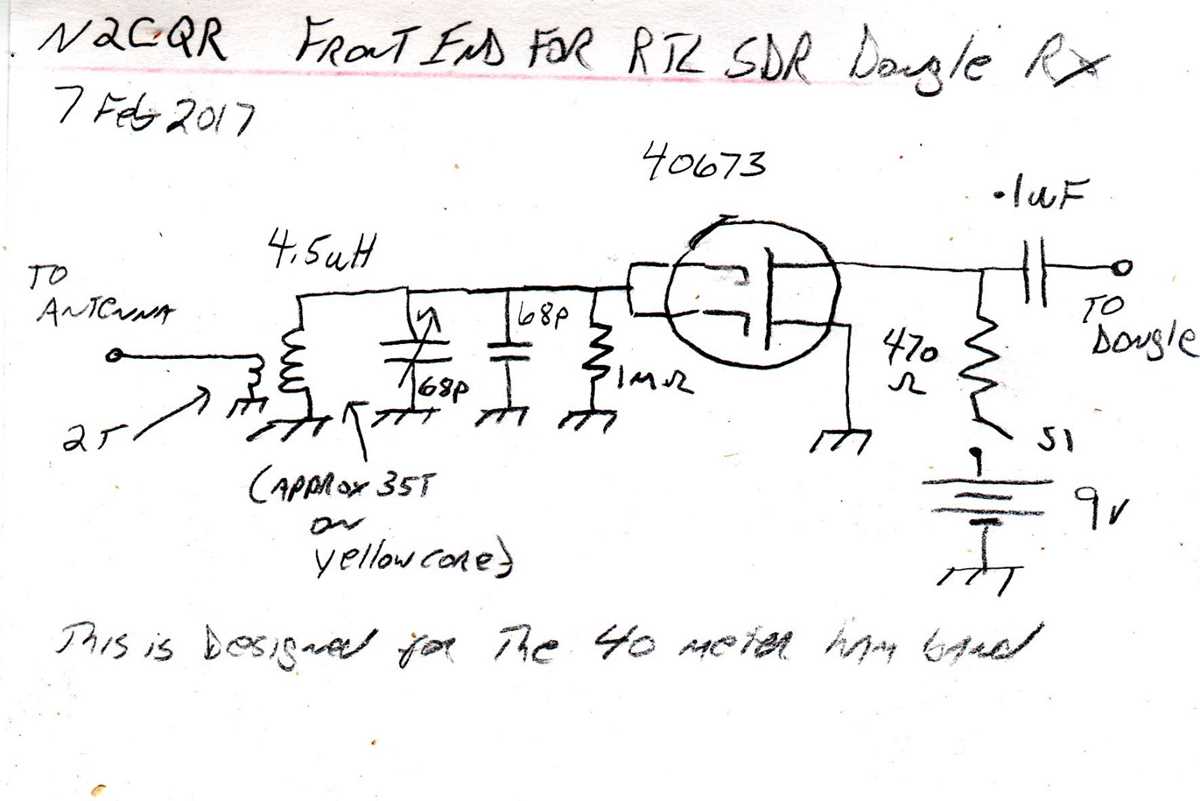 N2CQR FRONT END FOR RTL SDR Dongle Rx
7 Feb 2017
40673
.1uF
4.5uH
TO
ANTENNA
68p
68p
1MΩ
470
Ω
TO
Dongle
2T
S1
9v
(APPROX 35T
on
yellow core)
This is Designed for The 40 meter ham band